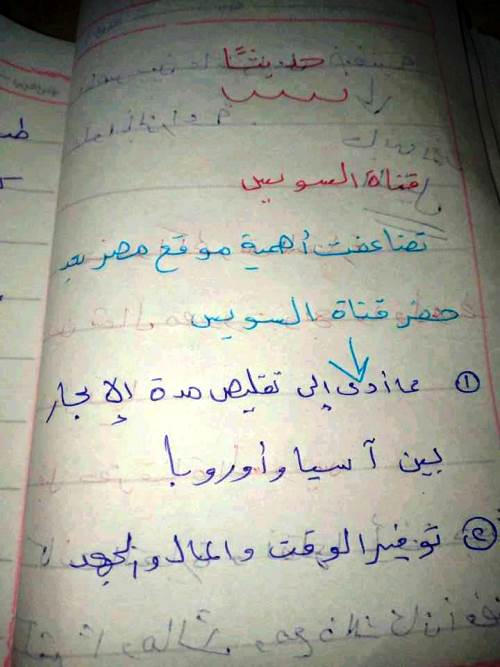 حديثًا
بسبب
قناة السويس
تضاعفت أهمية موقع مصر بعد
حفر قناة السويس
① مما أدى إلى تقليص مدة الإبحار
بين آسيا وأوروبا
② توفير الوقت والمال والجهد